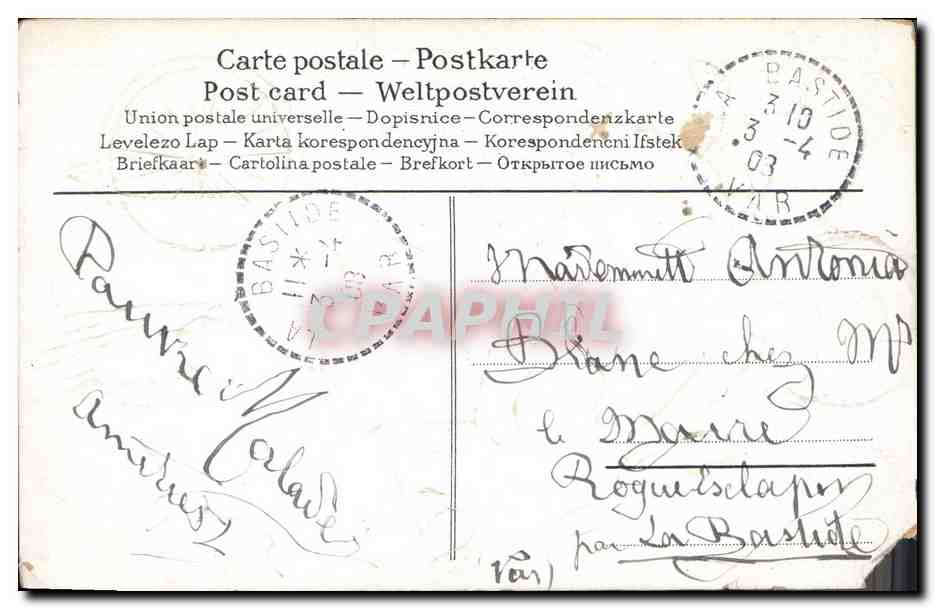 Carte postale – Postkarte
Post card — Weltpostverein
Union postale universelle – Dopisnice – Correspondenzkarte
Levelezo Lap – Karta korespondencyjna – Korespondencni lfstek
Briefkaart – Cartolina postale – Brefkort – Открытое письмо
LA BASTIDE
3 10
3 -4
03
VAR
LA BASTIDE
11 *
3 -4
03
VAR
CPAPHIL
Pauvre Malade
Antonia
Blanc chez Mr
le Maire
par La Bastide
Var)